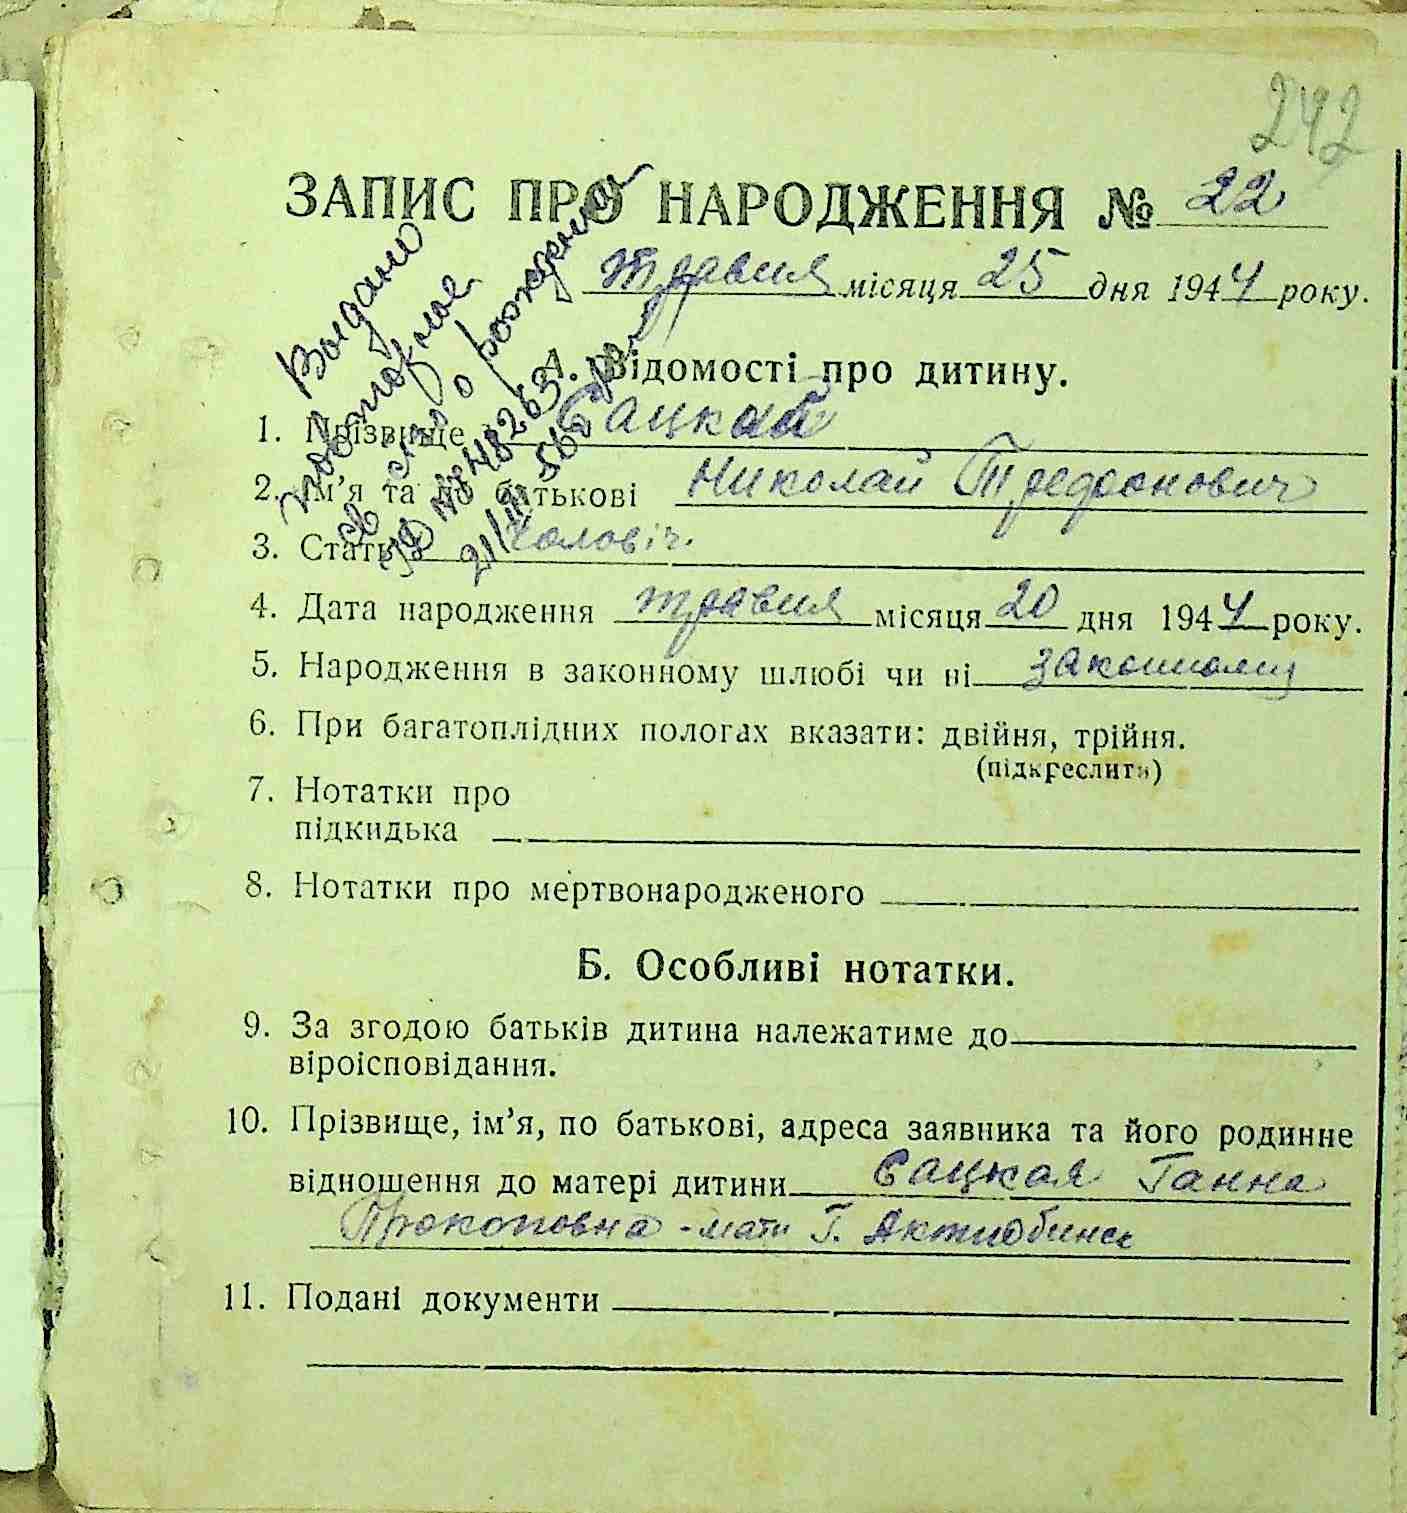 242
ЗАПИС ПРО НАРОДЖЕННЯ № 22
травня місяця 25 дня 1944 року.
Выдано
повторное
св о рождении
48263
21/III 56
А. Відомості про дитину.
1. Прізвище Сацкий
2. Ім'я та по батькові Николай
3. Стать чоловіч.
4. Дата народження травня місяця 20 дня 1944 року.
5. Народження в законному шлюбі чи ні законному
6. При багатоплідних пологах вказати: двійня, трійня.
(підкреслити)
7. Нотатки про
підкидька
8. Нотатки про мертвонародженого
Б. Особливі нотатки.
9. За згодою батьків дитина належатиме до
віроісповідання.
10. Прізвище, ім'я, по батькові, адреса заявника та його родинне
відношення до матері дитини Сацкая Ганна
Прокоповна - мати Г. Актюбинск
11. Подані документи